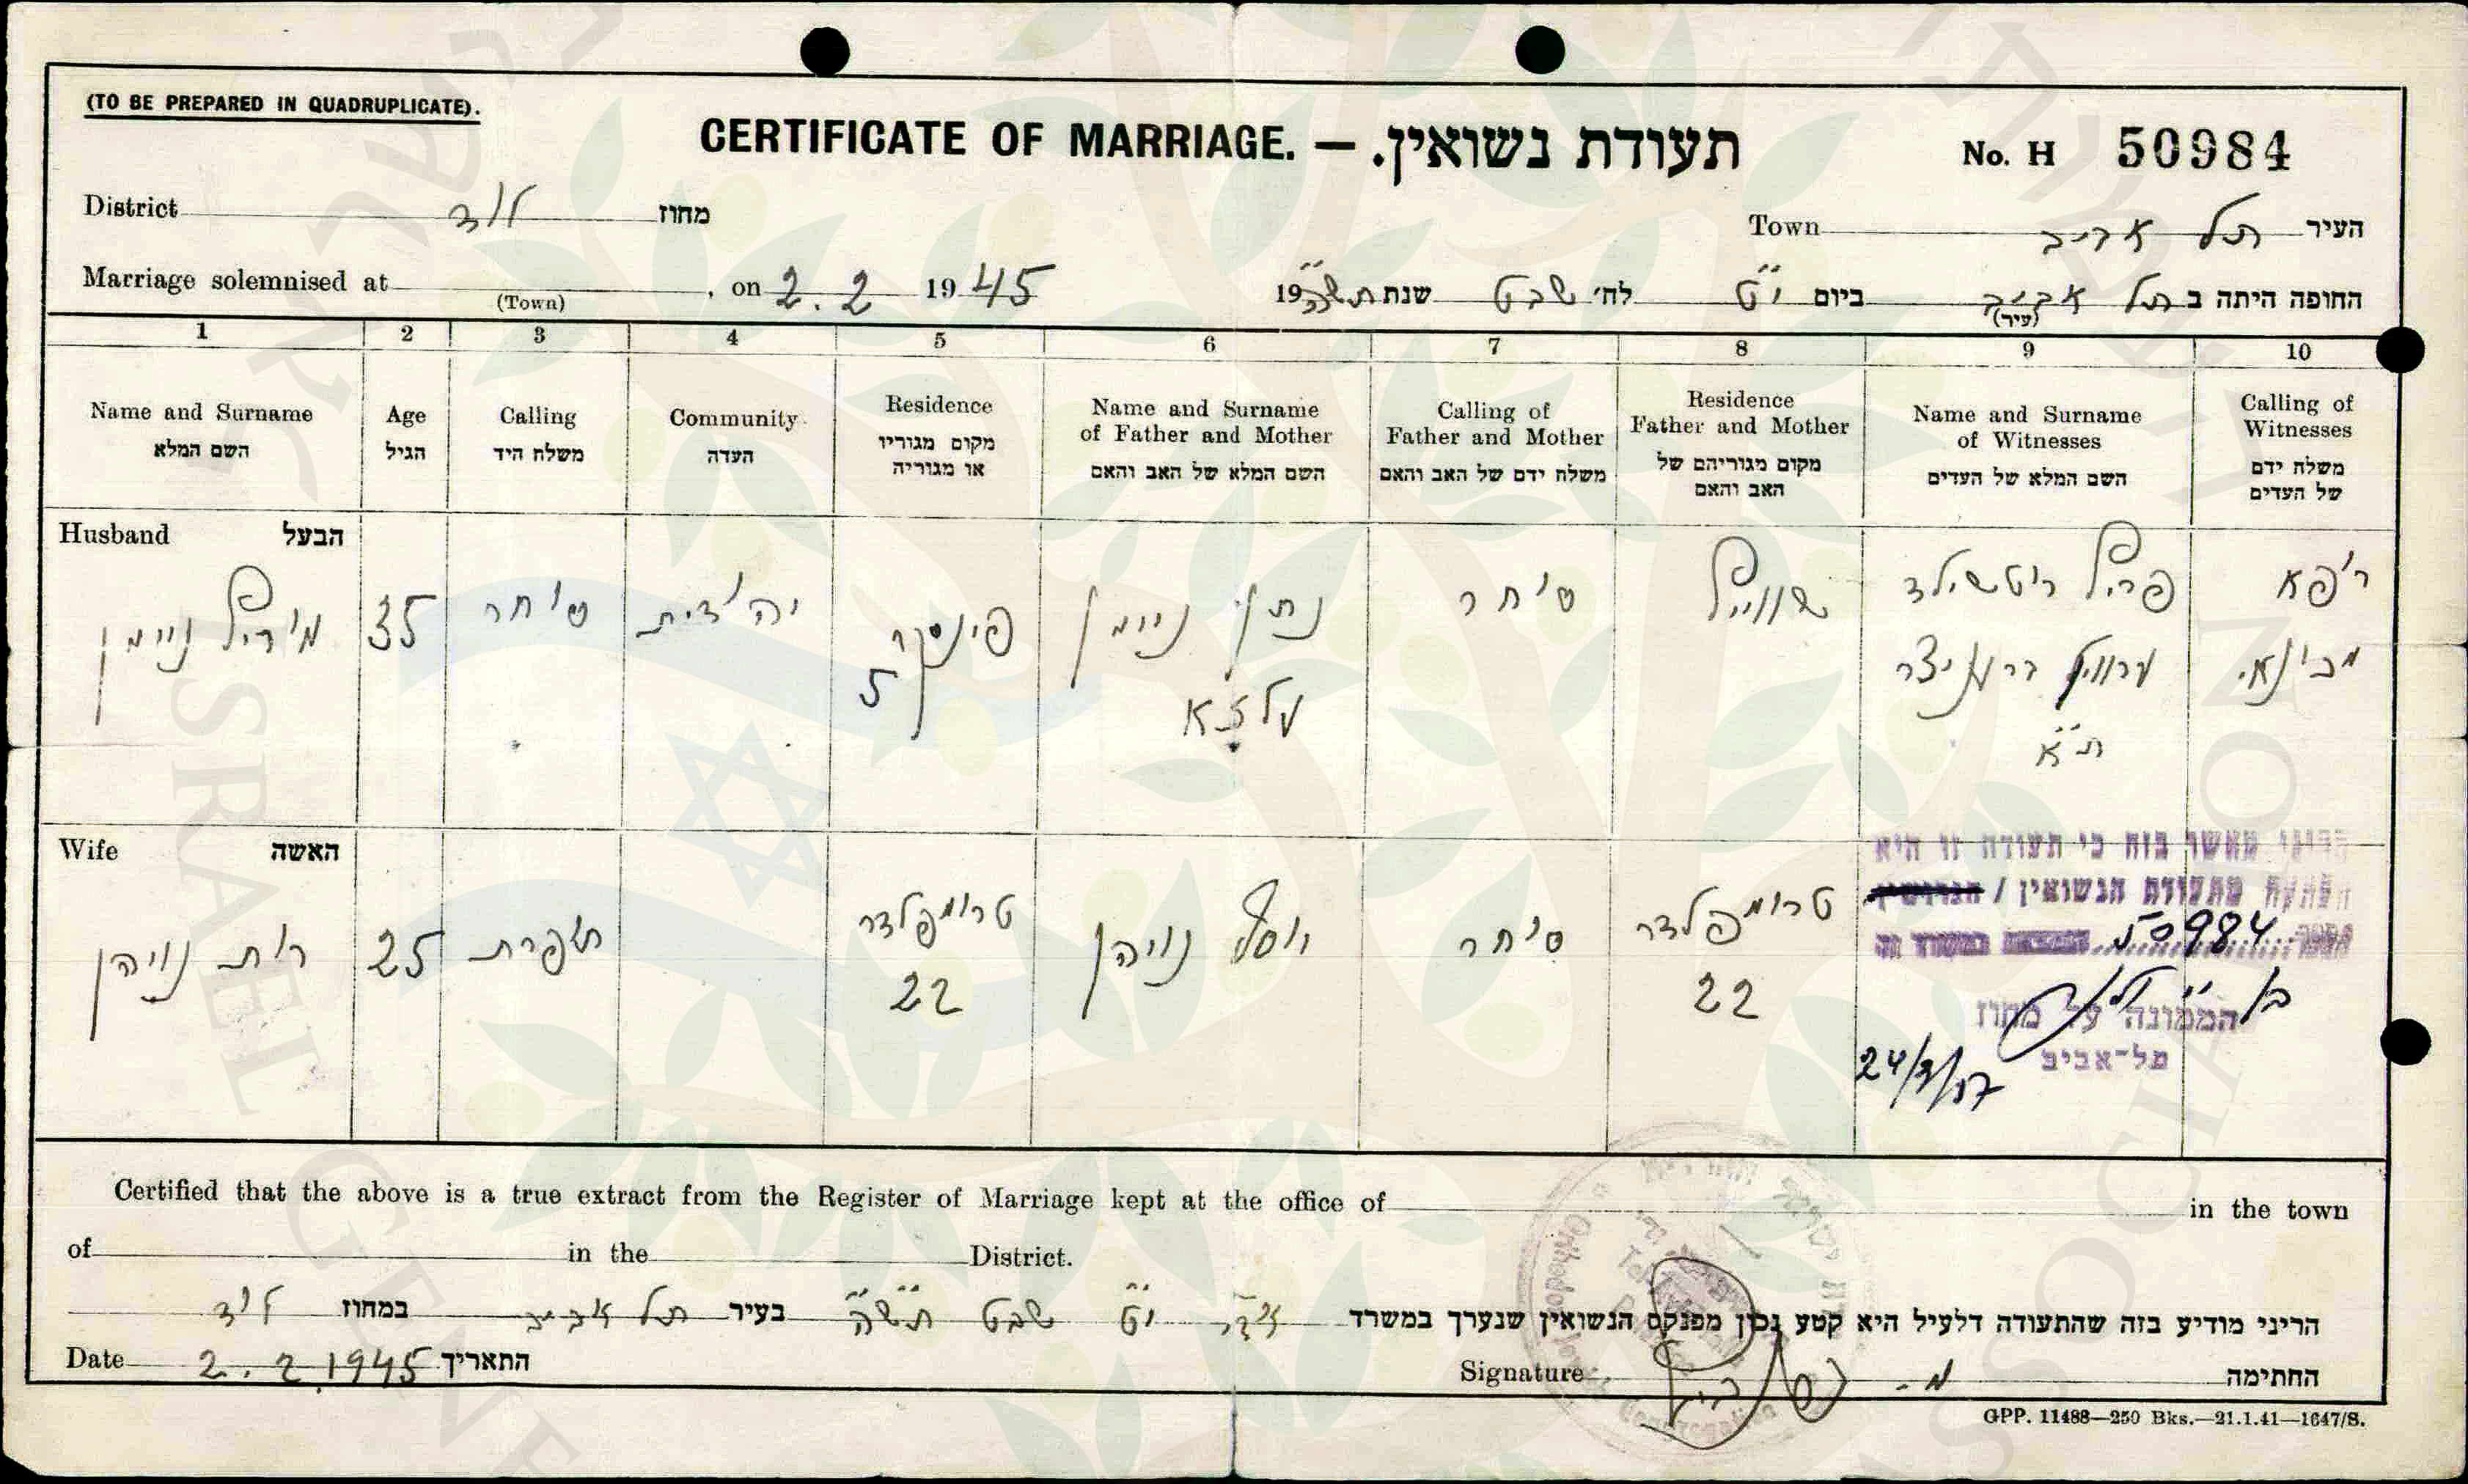 (TO BE PREPARED IN QUADRUPLICATE).
CERTIFICATE OF MARRIAGE. — תעודת נשואין.
No. H 50984
District לוד מחוז
Town תל אביב העיר
Marriage solemnised at (Town), on 2.2 1945
החופה היתה ב תל אביב (עיר) ביום י"ט לח' שבט שנת תש"ה 19
1 2 3 4 5 6 7 8 9 10
Name and Surname
השם המלא
Age
הגיל
Calling
משלח היד
Community
העדה
Residence
מקום מגוריו
או מגוריה
Name and Surname
of Father and Mother
השם המלא של האב והאם
Calling of
Father and Mother
משלח ידם של האב והאם
Residence
Father and Mother
מקום מגוריהם של
האב והאם
Name and Surname
of Witnesses
השם המלא של העדים
Calling of
Witnesses
משלח ידם
של העדים
Husband הבעל
ניימן
35
סוחר
יהודית
פינסקר
5
נתן ניימן
סוחר
רופא
מכונאי
ת"א
Wife האשה
רות נויהן
25
תופרת
טרומפלדר
22
יוסף נויהן
סוחר
טרומפלדר
22
הריני מאשר בזה כי תעודה זו היא
העתק מתעודת הנשואין /
50984
הממונה על מחוז
תל-אביב
Certified that the above is a true extract from the Register of Marriage kept at the office of in the town
of in the District.
הריני מודיע בזה שהתעודה דלעיל היא קטע נכון מפנקס הנשואין שנערך במשרד י"ט שבט תש"ה בעיר תל אביב במחוז לוד
Date 2.2.1945 התאריך
Signature החתימה
GPP. 11488—250 Bks.—21.1.41—1647/S.